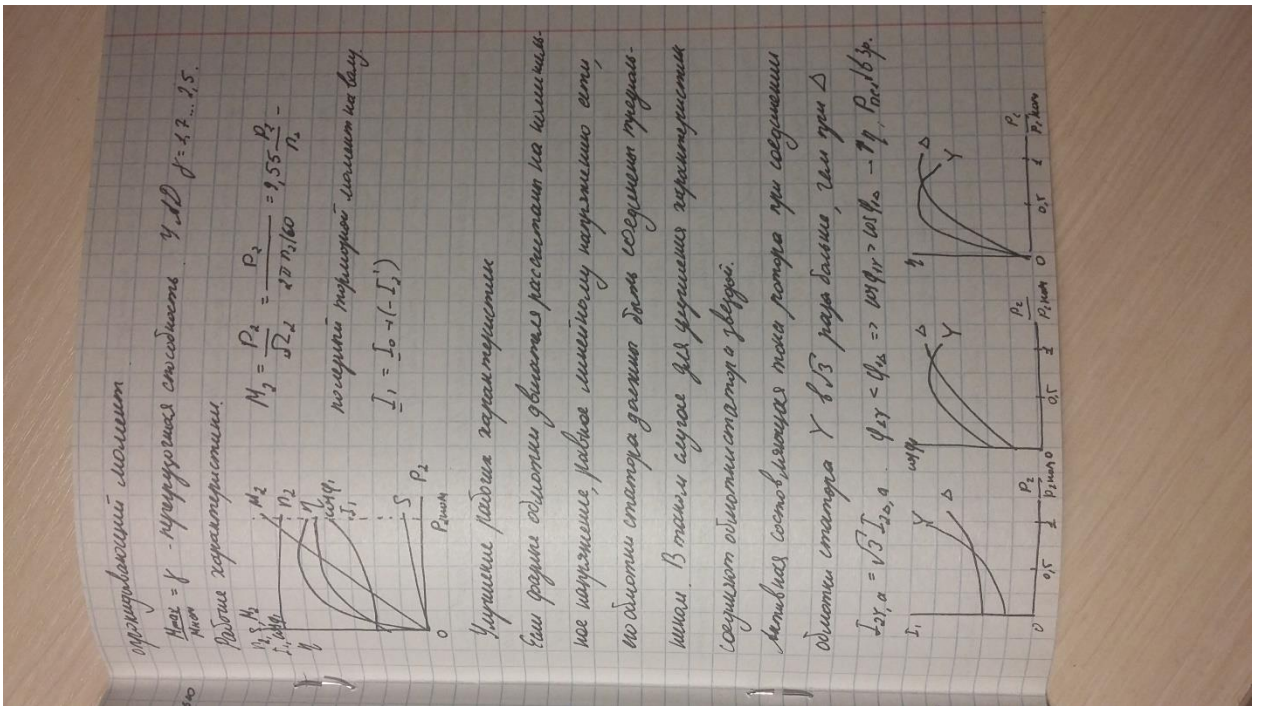 опрокидывающий момент
Mmax/Mном = γ - перегрузочная способность У АД γ = 1,7...2,5.
Рабочие характеристики.
n₂, S, M₂
I₁, cosφ₁
η
M₂
n₂
η
cosφ₁
I₁
S
0 P₂ном P₂
M₂ = P₂/Ω₂ = P₂/(2πn₂/60) = 9,55 P₂/n₂ -
полезный тормозной момент на валу
I₁ = I₀ + (-I₂')
Улучшение рабочих характеристик
Если фазные обмотки двигателя рассчитаны на номиналь-
ное напряжение, равное линейному напряжению сети,
то обмотки статора должны быть соединены треуголь-
ником. В таком случае для улучшения характеристик
соединяют обмотки статора звездой.
Активная составляющая тока ротора при соединении
обмотки статора Y в √3 раза больше, чем при Δ
I₂Y,a = √3 I₂Δ,a. φ₂Y < φ₂Δ => cosφ₁Y > cosφ₁Δ → ↑η,
I₁
Y
Δ
0 0,5 1 P₂/P₂ном
cosφ₁
Δ
Y
0 0,5 1 P₂/P₂ном
η
Δ
Y
0 0,5 1 P₂/P₂ном